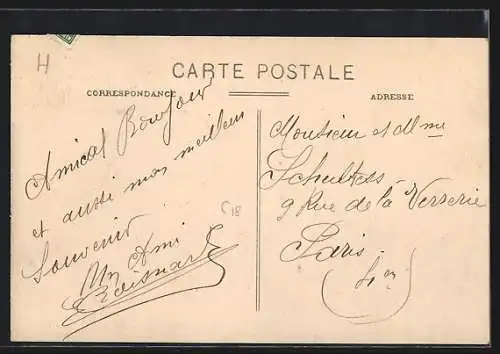 H
CARTE POSTALE
CORRESPONDANCE
ADRESSE
Amical Bonjour
et aussi mes meilleurs
Souvenir
Un Ami
C18
Monsieur et Mme
9 Rue de la Verrerie
Paris.
(4 em)